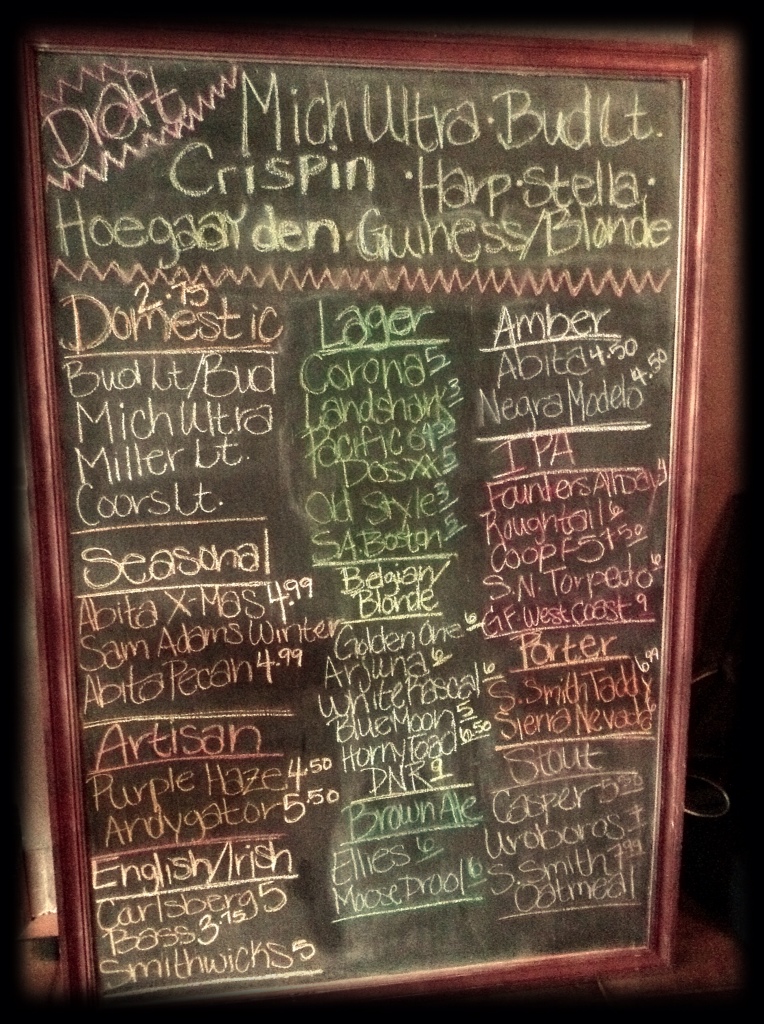 Draft
Mich Ultra · Bud Lt.
Crispin · Harp · Stella ·
Hoegaarden · Guiness/Blonde
Domestic 2.75
Bud Lt/Bud
Mich Ultra
Miller Lt.
Coors Lt.
Seasonal
Abita X-Mas 4.99
Sam Adams Winter
Abita Pecan 4.99
Artisan
Purple Haze 4.50
Andygator 5.50
English/Irish
Carlsberg 5
Bass 3.75
Smithwicks 5
Lager
Corona 5
Landshark 3
Pacifico
Dos XX 5
Old Style 3
S.A. Boston 5
Belgian/
Blonde
Golden One 6
Arjuna 6
White Rascal 6
Blue Moon 5
Horny Toad 6.50
DNR 9
Brown Ale
Ellies 6
Moose Drool 6
Amber
Abita 4.50
Negra Modelo 4.50
IPA
Founders All Day
Roughtail 6
Coop F5
S.N. Torpedo 6
G.F. West Coast 9
Porter
S. Smith Taddy 6.99
Sierra Nevada 6
Stout
Casper
Uroboros
S. Smith 7.99
Oatmeal